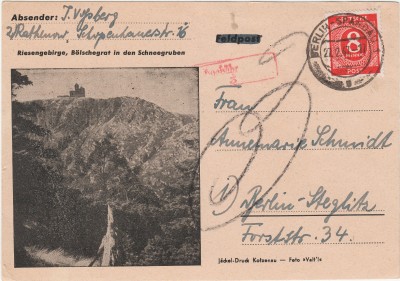 Absender:
Rathenow, Schopenhauerstr. 16
Riesengebirge, Bölschegrat in den Schneegruben
Feldpost
BERLIN
8
POST
Frau
Annemarie Schmidt
1 Berlin-Steglitz
Forststr. 34.
Jäckel-Druck Katzenau — Foto »Veit'l«